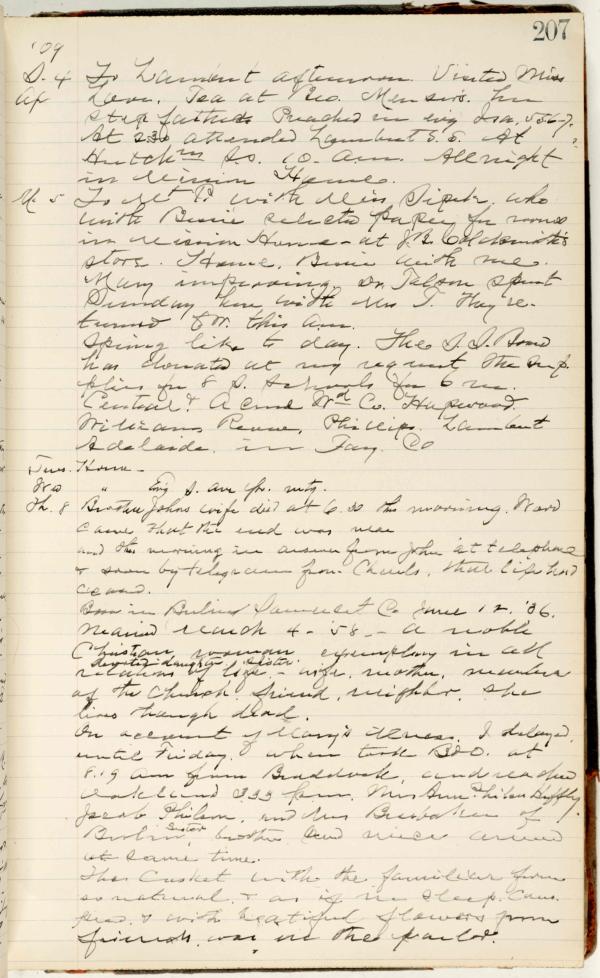 207
'09
S. 4 To Lambert afternoon. Visited Miss
Ap Love. Tea at Geo. her
step father's Preached in evg Isa, 55 6-7.
At 2 30 attended Lambert S. S. At
10. a.m. All night
in Mission Home.
M. 5 To Mt with Miss who
with Bessie selected paper for rooms
in Mission Home - at J.R. Goldsmith's
store. Home, Bessie with me.
Mary improving. Dr. spent
Sunday here with Mrs T. They re-
turned for. this a.m.
Spring like to day. The S. S. Board
has donated at my request the sup-
plies for 8 S. Schools for 6 m.
Central & Acme Co. Hopwood.
Williams Phillips. Lambert
Adelaide. in Fay. Co
Tues. Home -
We " Evg S. ave mtg.
Th. 8 Brother Johns wife died at 6.30 this morning. Word
came that the end was near
and this morning in answer from John at telephone
& soon by telegram from Charles, that life had
ceased.
Born in Berlin Somerset Co June 12. '36.
Married March 4 - '58. - A noble
Christian, woman exemplary in all
devoted daughter sister
relations of life, - wife, mother, member
of the Church. friend, neighbor. She
lives though dead.
On account of Mary's illness. I delayed,
until Friday. when took B&O. at
8.19 am from Braddock, and reached
3 33 p.m. Mrs Anna Philson
Jacob Philson, and Mrs Brubaker of
Berlin, sister, brother and niece arrived
at same time.
The Casket with the familiar form
so natural, & as if in sleep.
& with beautiful flowers from
friends, was in the parlor.